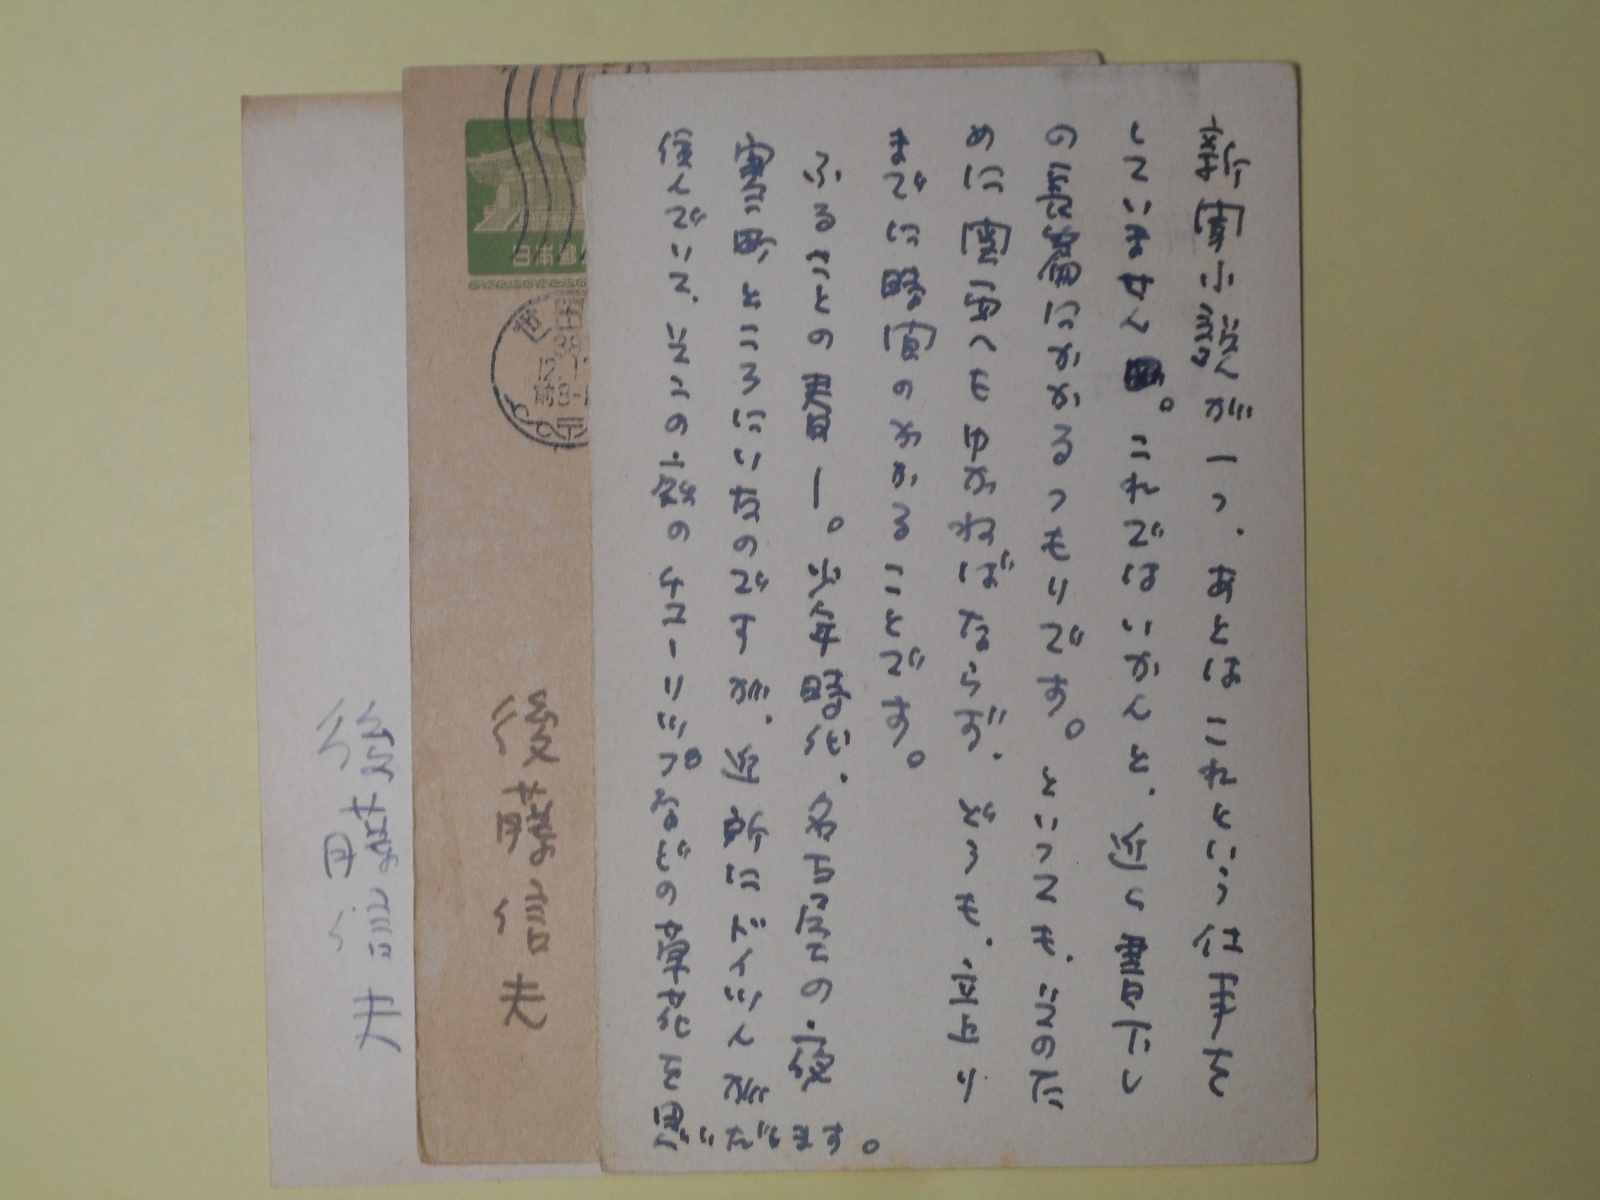 新聞小説が一つ、あとはこれという仕事を
していません。これではいかんと、近く書下し
のにかかるつもりです。といっても、そのた
めにもゆかねばならず、どうも、立上り
までに時間のかかることです。
ふるさとの ー。少年時代、名古屋の
ところにいたのですが、近所にドイツ人が
住んでいて、そこののチューリップなどの草花を
思いだします。
日本郵
世田
38
12.1
前8-
後藤信夫
後藤信夫